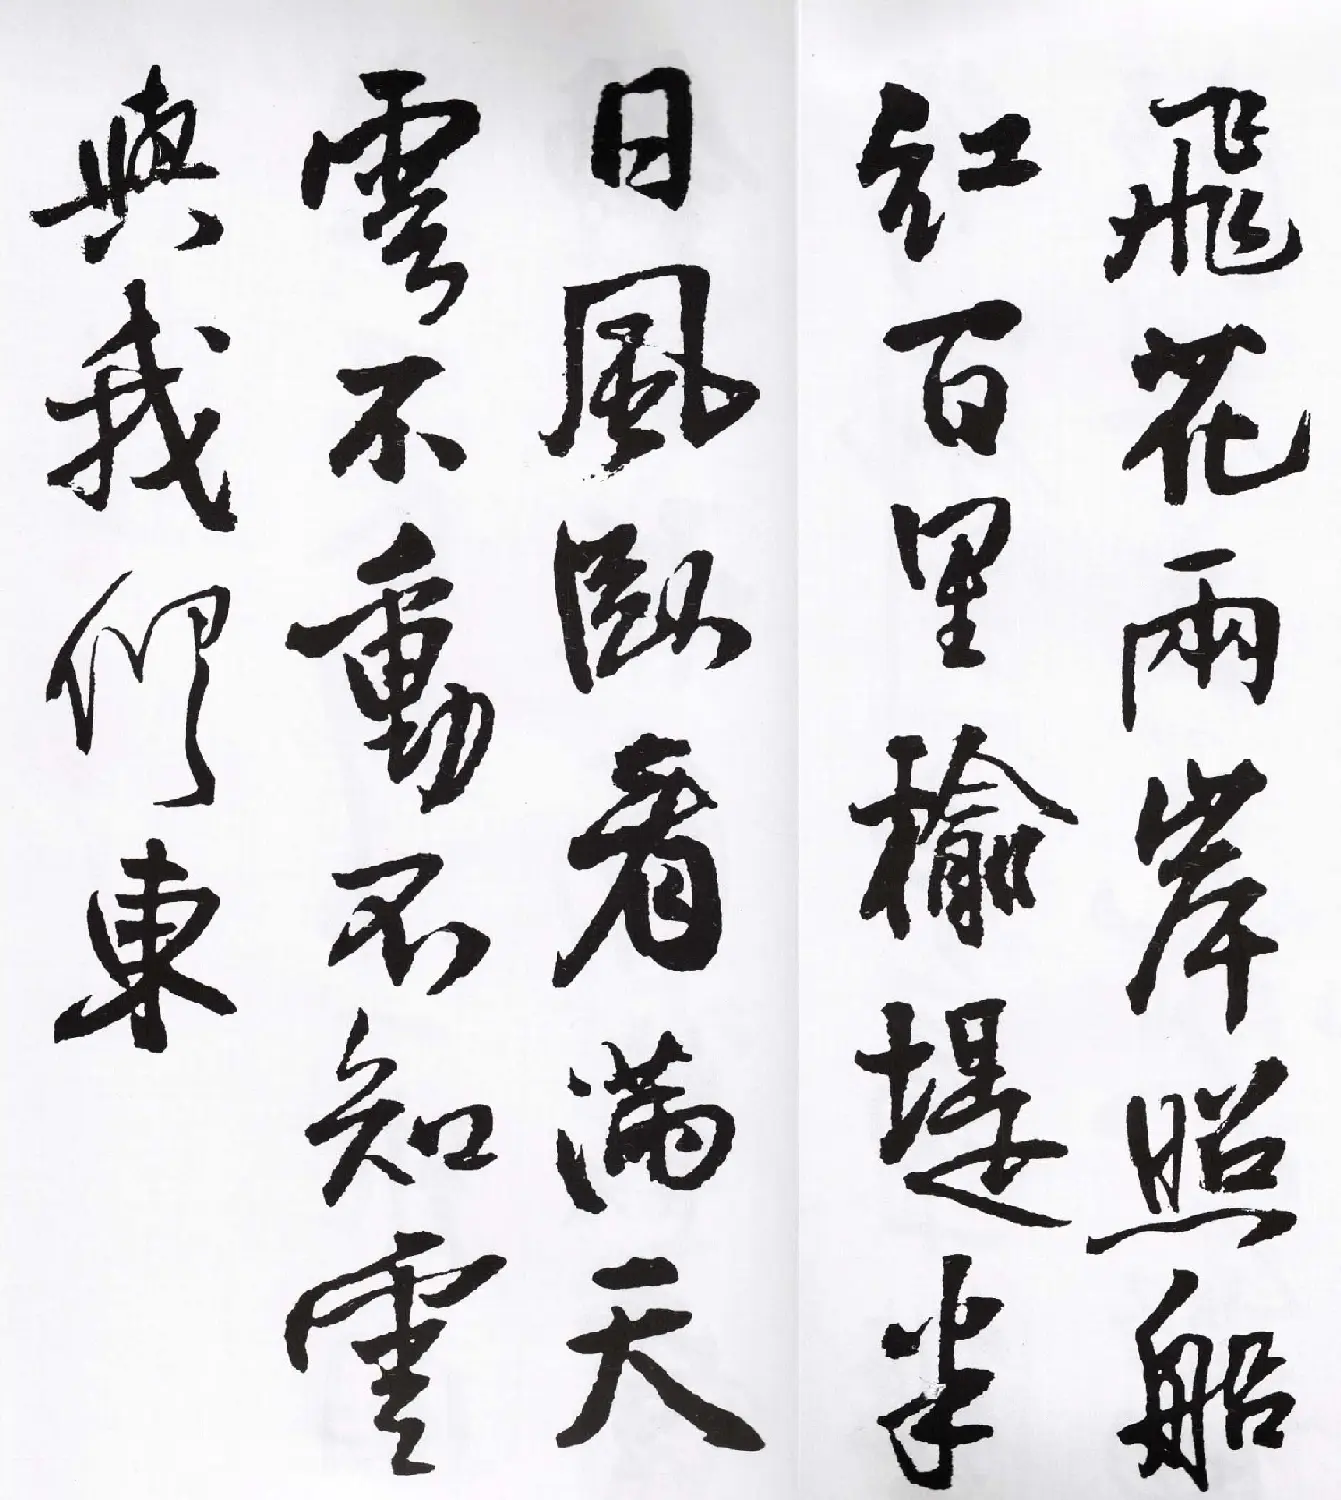 飛花兩岸照船
紅百里榆堤半
日風臥看滿天
雲不動不知雲
與我俱東